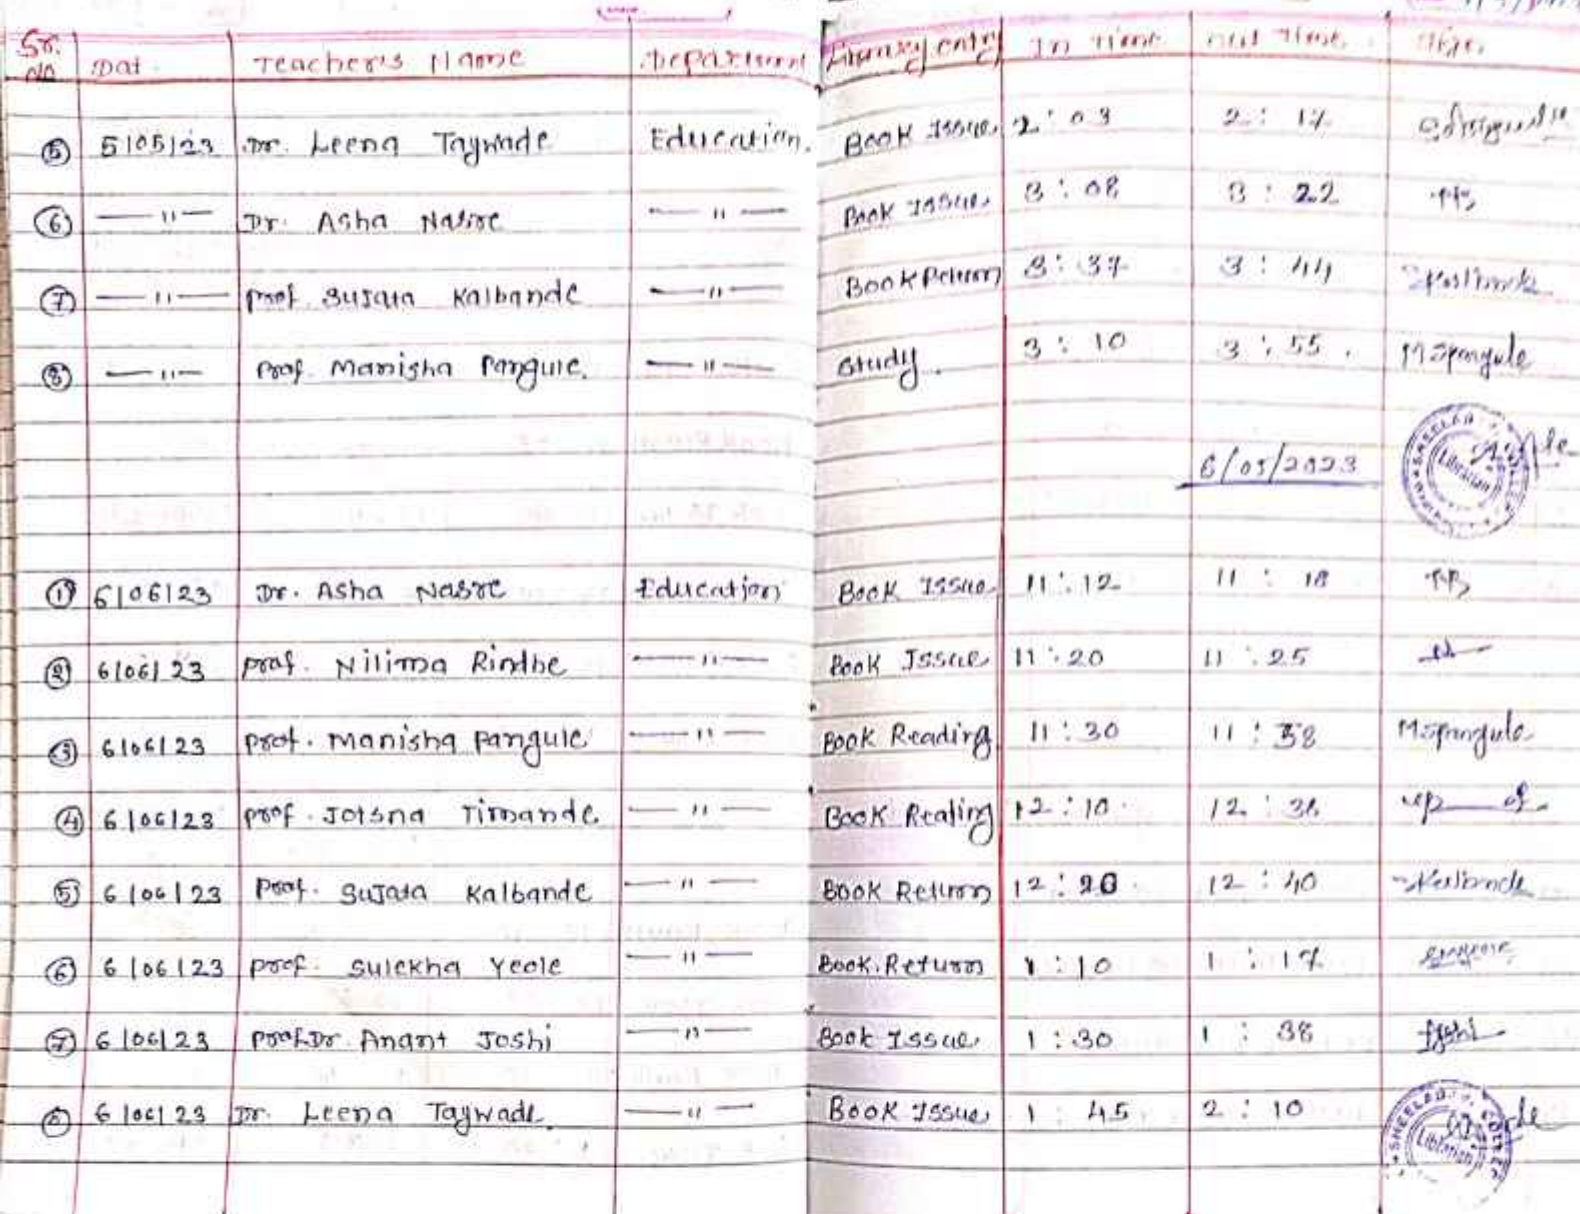 Sr. No Dat. Teacher's Name Department Library entry In Time Out Time Sign
5 5/05/23 Dr. Leena Taywade Education. Book Issue 2:03 2:17
6 —"— Dr. Asha Nasre —"— Book Issue 3:08 3:22
7 —"— Prof. Sujata Kalbande —"— Book Return 3:37 3:44 Kalbande
8 —"— Prof. Manisha Pangule. —"— Study. 3:10 3:55. MSpangule
6/05/2023 SHEELA Librarian
1 6/06/23 Dr. Asha Nasre Education Book Issue 11:12 11:18
2 6/06/23 Prof. Nilima Rindhe —"— Book Issue 11:20 11:25
3 6/06/23 Prof. Manisha Pangule —"— Book Reading 11:30 11:38 MSpangule
4 6/06/23 Prof. Jotsna Timande —"— Book Reading 12:10 12:36
5 6/06/23 Prof. Sujata Kalbande —"— Book Return 12:20 12:40 Kalbande
6 6/06/23 Prof. Sulekha Yeole —"— Book Return 1:10 1:17
7 6/06/23 Prof. Dr. Anant Joshi —"— Book Issue 1:30 1:38 Joshi
8 6/06/23 Dr. Leena Taywade. —"— Book Issue 1:45 2:10
Librarian